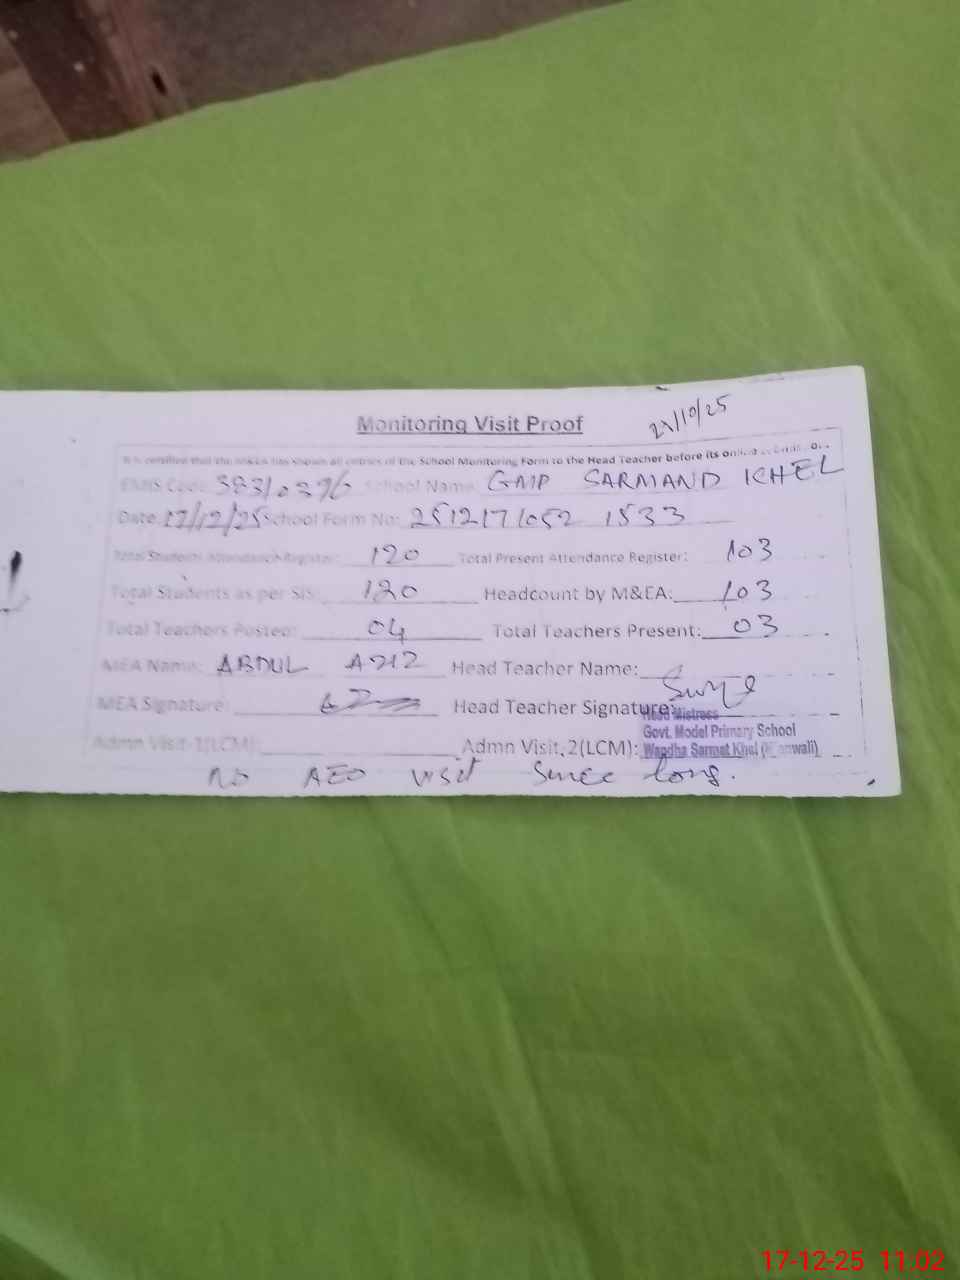 Monitoring Visit Proof
It is certified that the MEA has shown all entries of the School Monitoring Form to the Head Teacher before its
EMIS Code: 38310396 School Name: GMP SARMAND KHEL
Date: 17/12/25 School Form No: 2512171052 1533
Total Students Attendance Register: 120 Total Present Attendance Register: 103
Total Students as per SIS: 120 Headcount by M&EA: 103
Total Teachers Posted: 04 Total Teachers Present: 03
MEA Name: ABDUL AZIZ Head Teacher Name:
MEA Signature: Head Teacher Signature:
Head Mistress
Govt. Model Primary School
Admn Visit-1(LCM): Admn Visit, 2(LCM): Wandha Sarmat Khel
No AEO visit Since long.
17-12-25 11:02